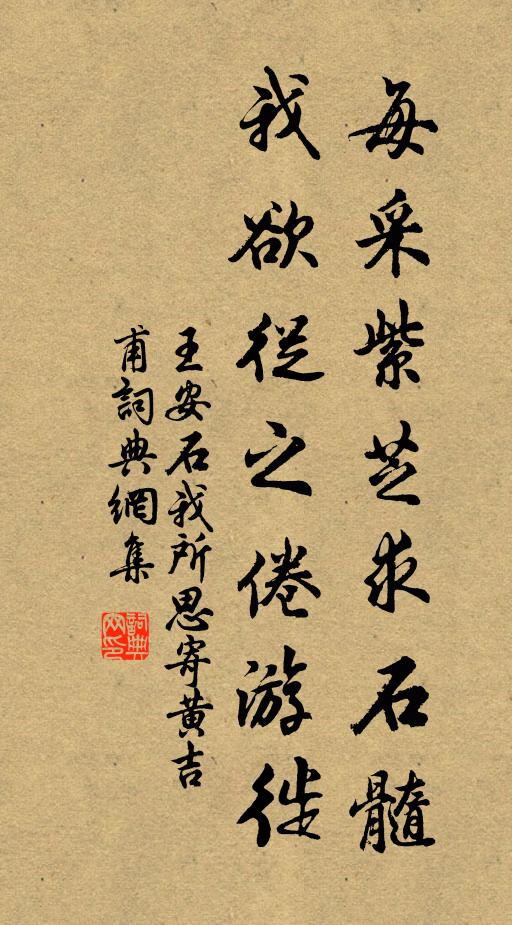 每采紫芝求石髓
我欲從之倦游徙
王安石我所思寄黃吉
甫詞典網集
詞典
网印